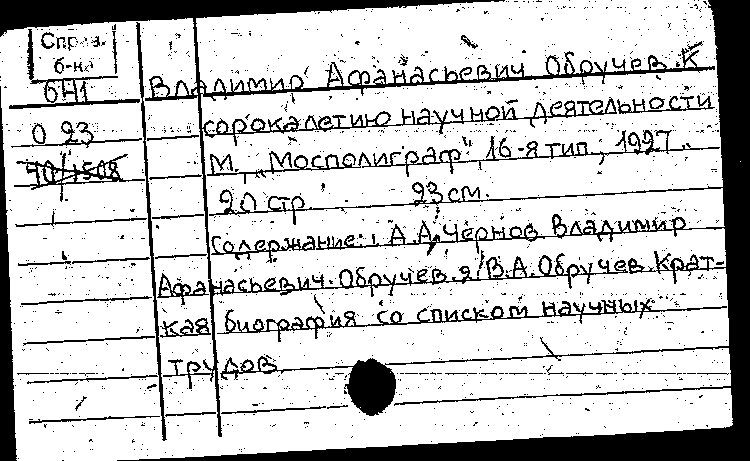 Справ.
б-на
6П1
Владимир Афанасьевич Обручев. К
О 23
сорокалетию научной деятельности
М., "Мосполиграф", 16-я тип., 1927.
20 стр. 23 см.
Содержание: 1. А.А. Чернов Владимир
Афанасьевич Обручев. 2/В.А. Обручев. Крат-
кая биография со списком научных
трудов